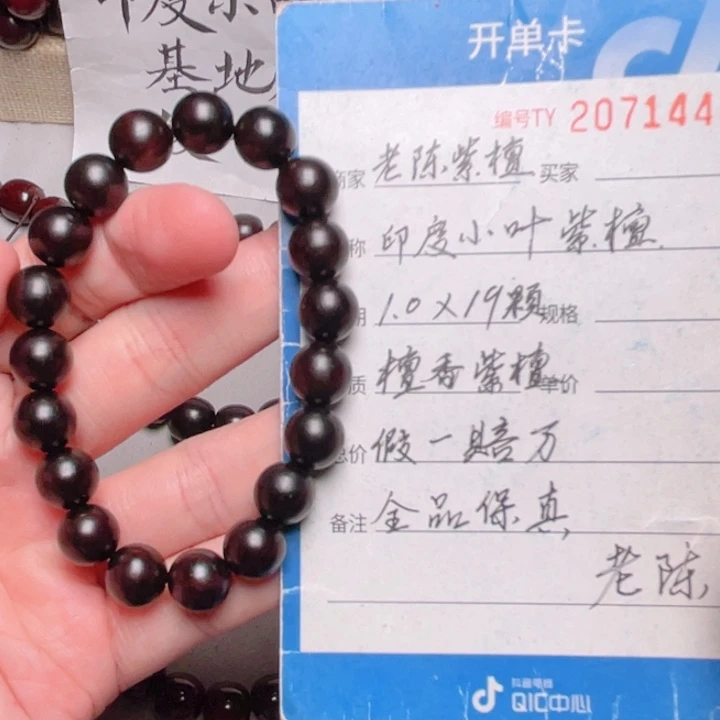 印度小
基地
开单卡
编号TY 207144
商家 老陈紫檀 买家
称 印度小叶紫檀
期 1.0X19颗 规格
质 檀香紫檀 单价
总价 假一赔万
备注 全品保真
老陈
抖音电商
QIC中心